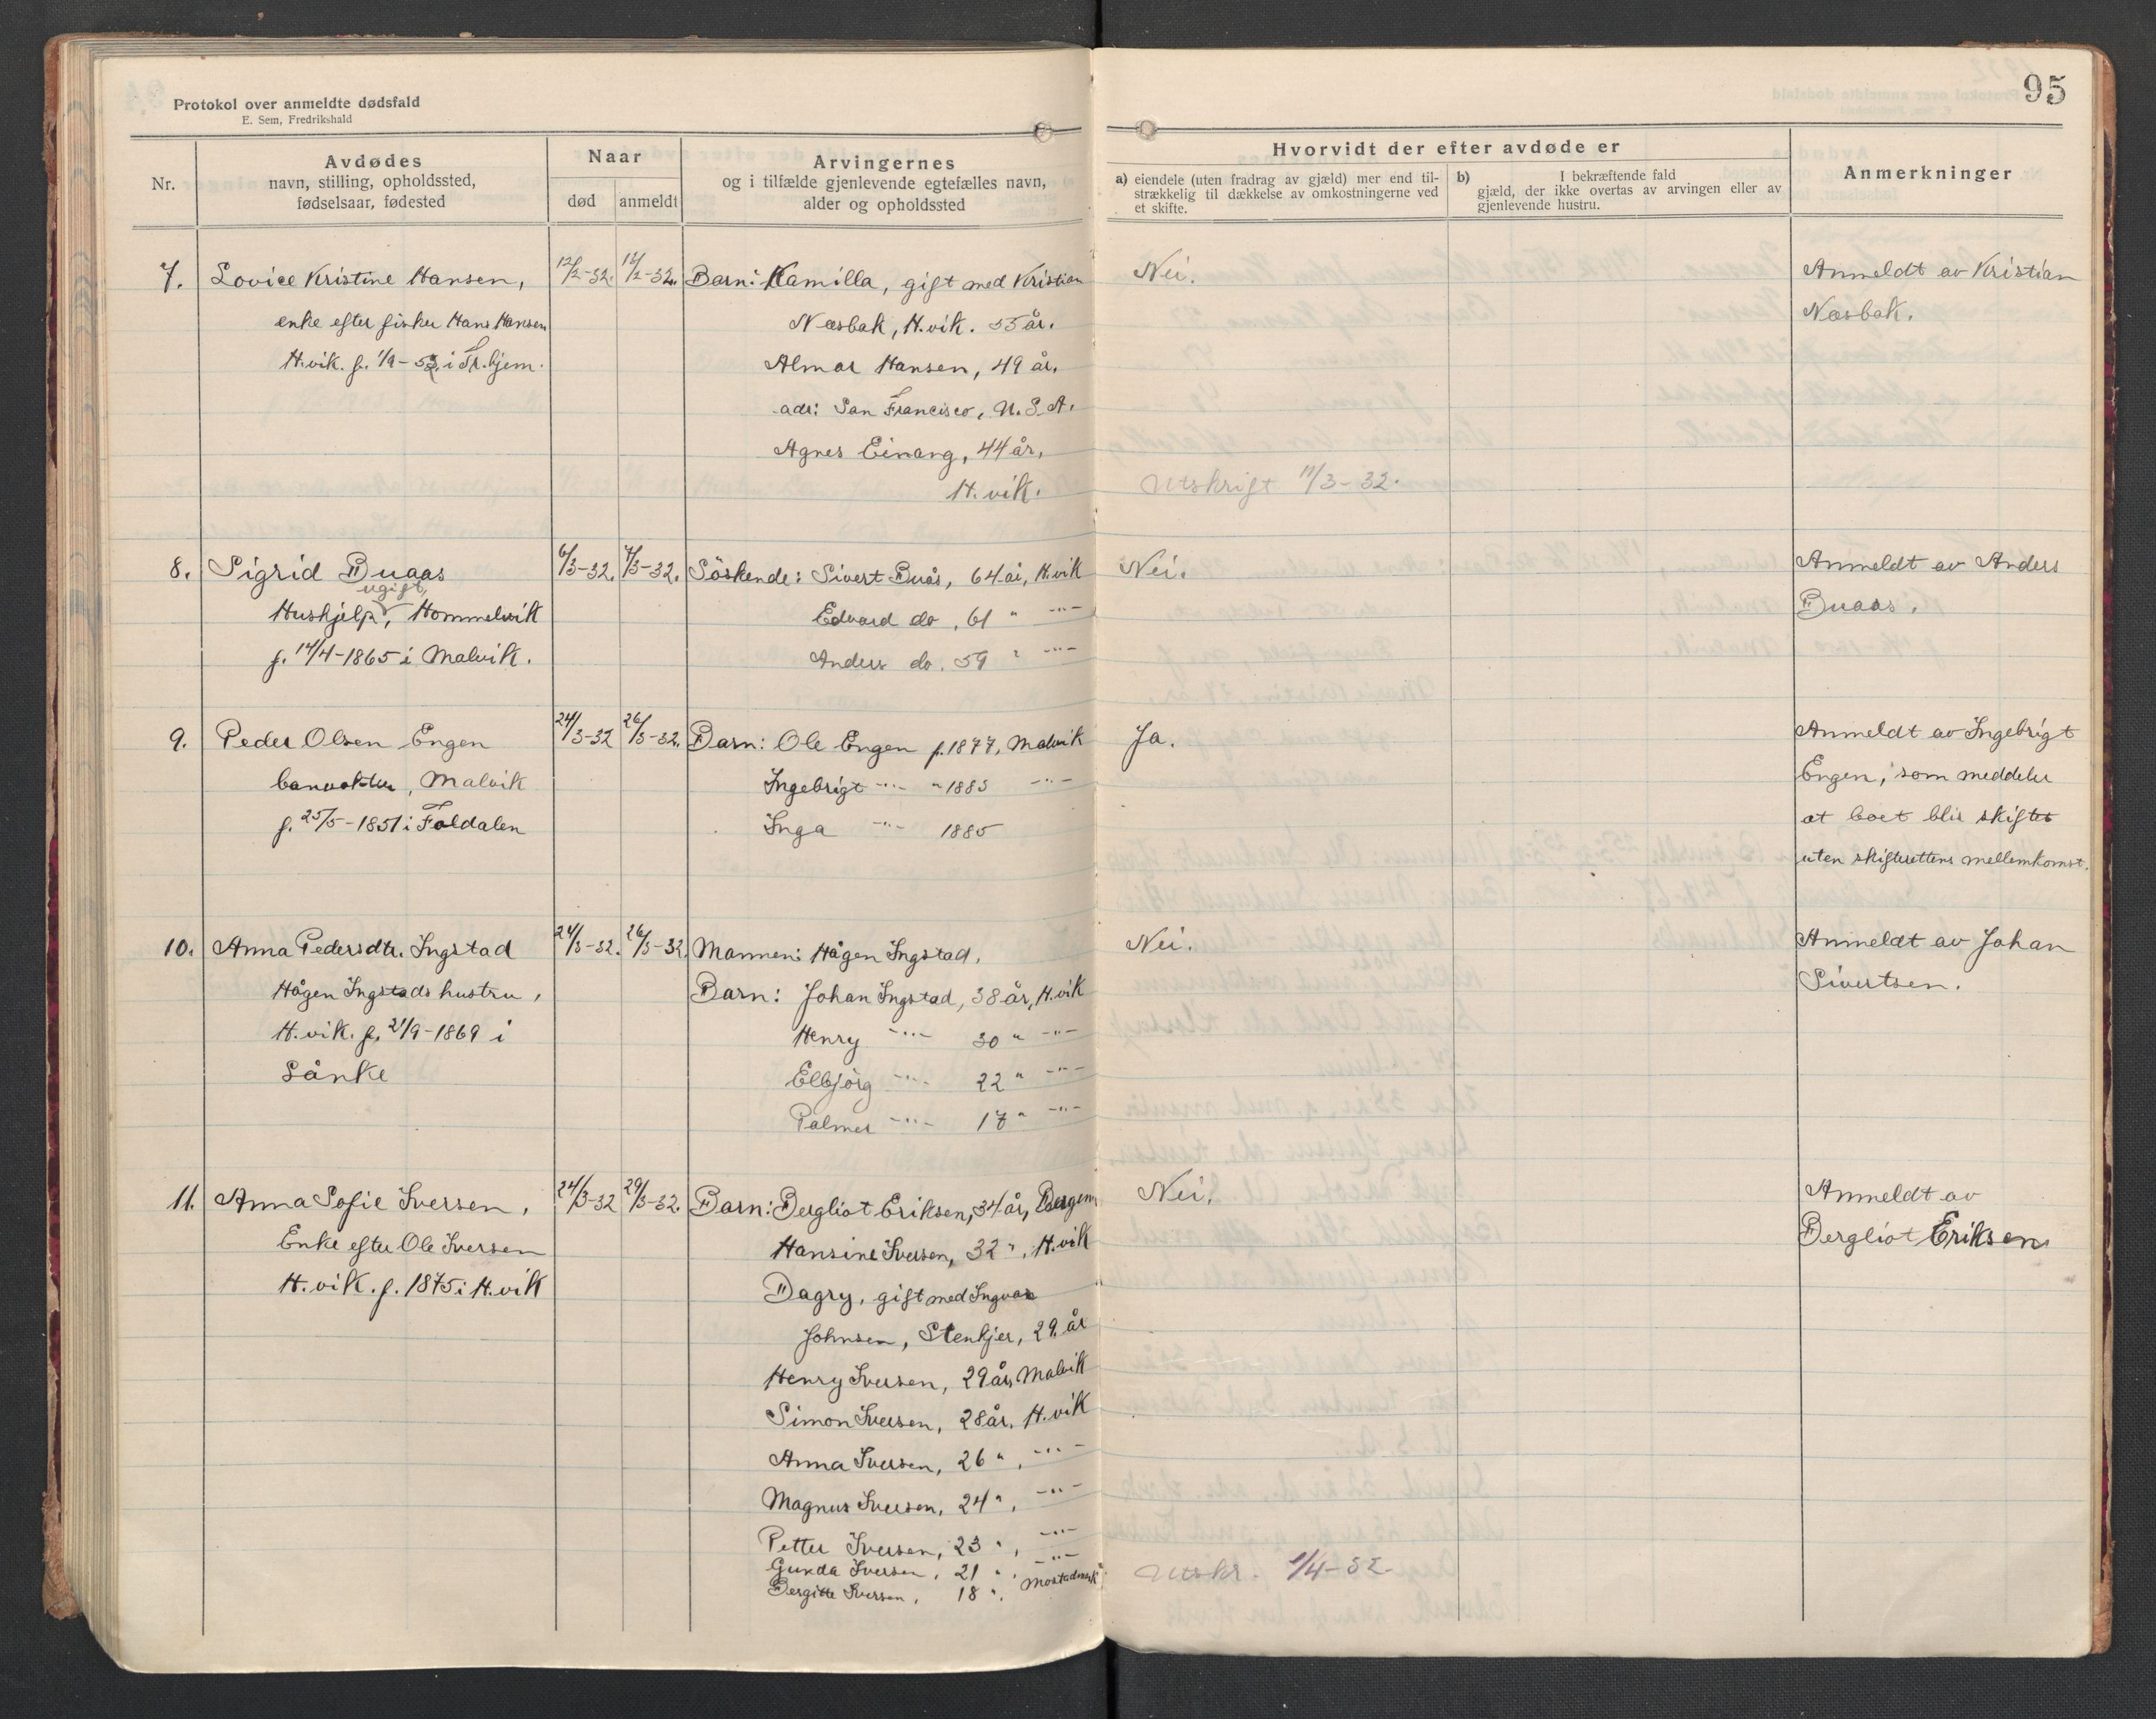 Protokol over anmeldte dødsfald
E. Sem, Fredrikshald
95
Nr.
Avdødes
navn, stilling, opholdssted,
fødselsaar, fødested
Naar
død
anmeldt
Arvingernes
og i tilfælde gjenlevende egtefælles navn,
alder og opholdssted
Hvorvidt der efter avdøde er
a) eiendele (uten fradrag av gjæld) mer end til-
strækkelig til dækkelse av omkostningerne ved
et skifte.
b) I bekræftende fald
gjæld, der ikke overtas av arvingen eller av
gjenlevende hustru.
Anmerkninger
7. Lovice Kristine Hansen,
enke efter fisker Hans Hansen
H.vik. f. 1/9-53 i Tr.hjem.
12/2-32. 16/2-32.
Barn: Kamilla, gift med Kristian
Næsbak, H.vik. 55 år.
Almar Hansen, 49 år.
adr: San Francisco, U.S.A.
Agnes Einang, 44 år,
H.vik.
Nei.
Utskrift 11/3-32.
Anmeldt av Kristian
Næsbak.
8. Sigrid Buaas
ugift,
Hushjelp, Hommelvik
f. 14/4-1865 i Malvik.
6/3-32. 7/3-32.
Söskende: Sivert Buås, 64 år, H.vik
Edvard do, 61 " -"-
Anders do. 59 " -"-
Nei.
Anmeldt av Anders
Buaas.
9. Peder Olsen Engen
banvokter, Malvik
f. 25/5-1851 i Foldalen
24/3-32 26/3-32.
Barn: Ole Engen f. 1877, Malvik
Ingebrigt -"- " 1883 -"-
Inga -"- 1885
Ja.
Anmeldt av Ingebrigt
Engen, som meddeler
at boet blir skiftet
uten skifterettens mellemkomst.
10. Anna Pedersdtr. Ingstad
Hågen Ingstads hustru,
H.vik. f. 21/9-1869 i
Sånke
24/3-32. 26/3-32
Mannen: Hågen Ingstad.
Barn: Johan Ingstad, 38 år, H.vik
Henry -"- 30 " -"-
Ellbjörg -"- 22 " -"-
Palmer -"- 17 " -"-
Nei.
Anmeldt av Johan
Sivertsen.
11. Anna Sofie Iversen,
Enke efter Ole Iversen
H.vik. f. 1875 i H.vik
24/3-32 29/3-32.
Barn: Bergliot Eriksen, 34 år, Bergen
Hansine Iversen, 32 ", H.vik
Dagry, gift med Ingvar
Johnsen, Stenkjer, 29 år
Henry Iversen, 29 år, Malvik
Simon Iversen, 28 år, H.vik
Anna Iversen, 26 ", -"-
Magnus Iversen, 24 ", -"-
Petter Iversen, 23 ", -"-
Gunda Iversen, 21 ", -"-
Bergitte Iversen, 18 ", Mostadmark
Nei.
Utskr. 1/4-32
Anmeldt av
Bergliot Eriksen